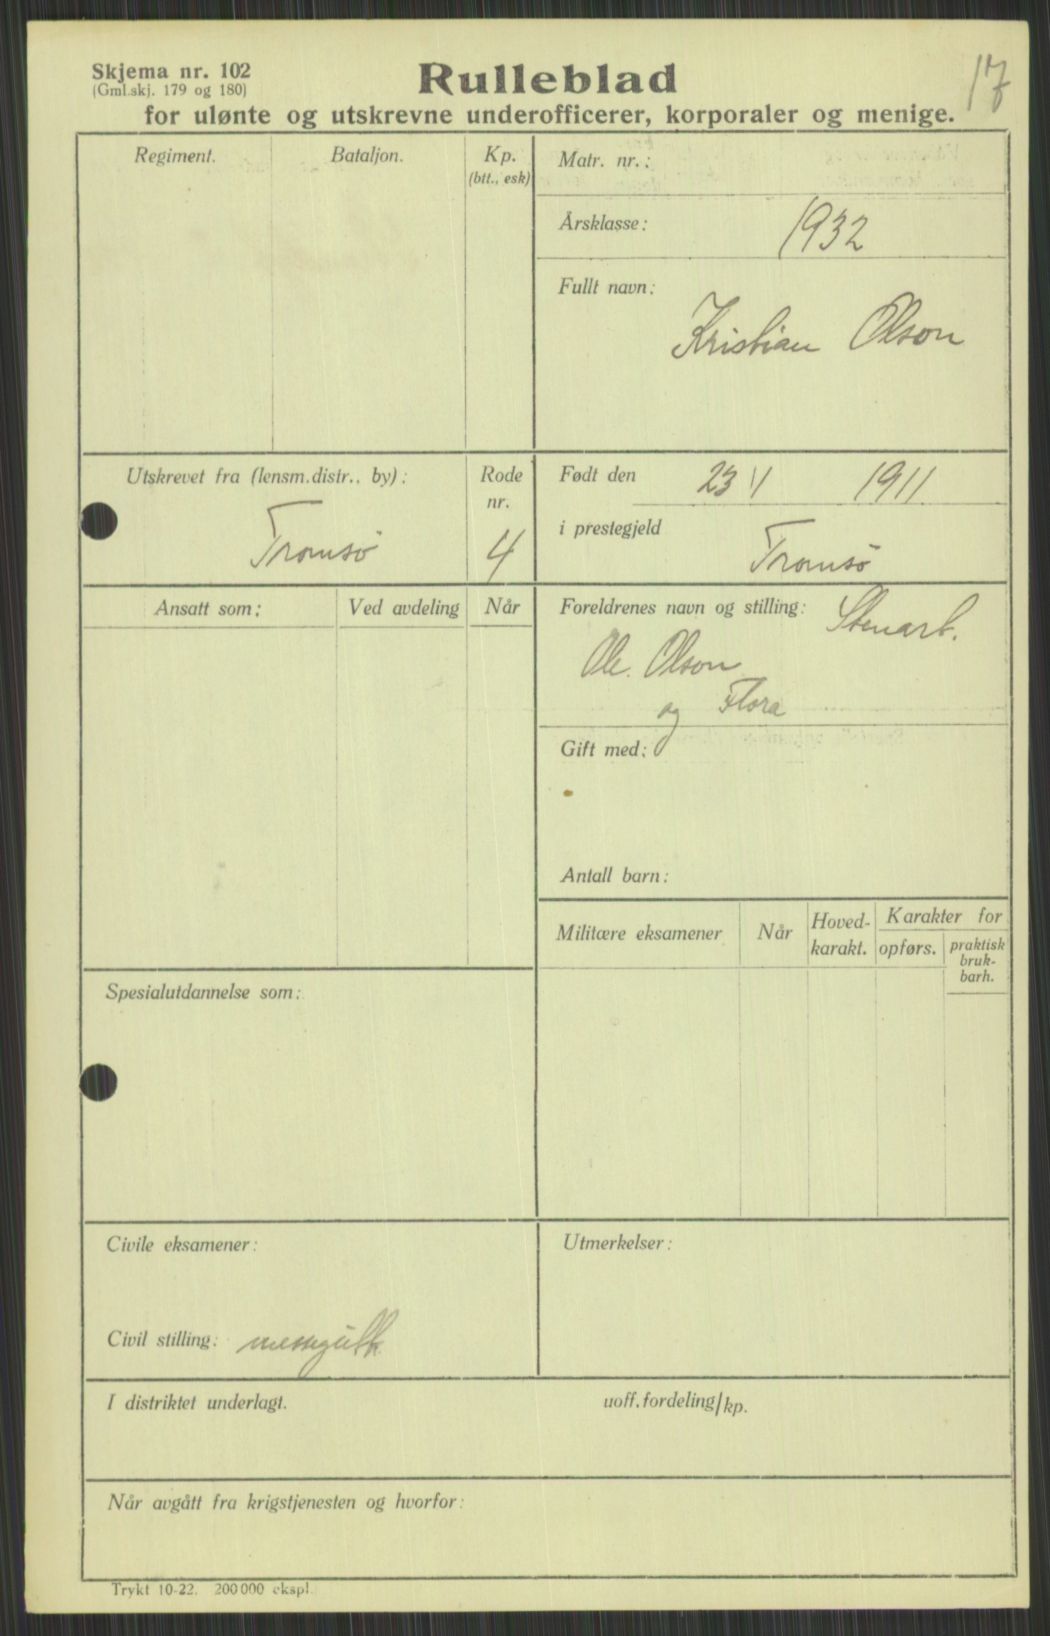 17
Skjema nr. 102
(Gml.skj. 179 og 180)
Rulleblad
for ulønte og utskrevne underofficerer, korporaler og menige.
Regiment.
Bataljon.
Kp.
(btt., esk)
Matr. nr.:
Årsklasse: 1932
Fullt navn:
Kristian Olson
Utskrevet fra (lensm.distr., by):
Tromsø
Rode
nr.
4
Født den 23 1911
i prestegjeld
Tromsø
Ansatt som:
Ved avdeling
Når
Foreldrenes navn og stilling: Stenarb.
Ole. Olson
og Flora
Gift med:
Antall barn:
Militære eksamener
Når
Hoved-
karakt.
Karakter for
opførs.
praktisk
bruk-
barh.
Spesialutdannelse som:
Civile eksamener:
Utmerkelser:
Civil stilling: messegutt
I distriktet underlagt.
uoff.fordeling/kp.
Når avgått fra krigstjenesten og hvorfor:
Trykt 10-22. 200 000 ekspl.